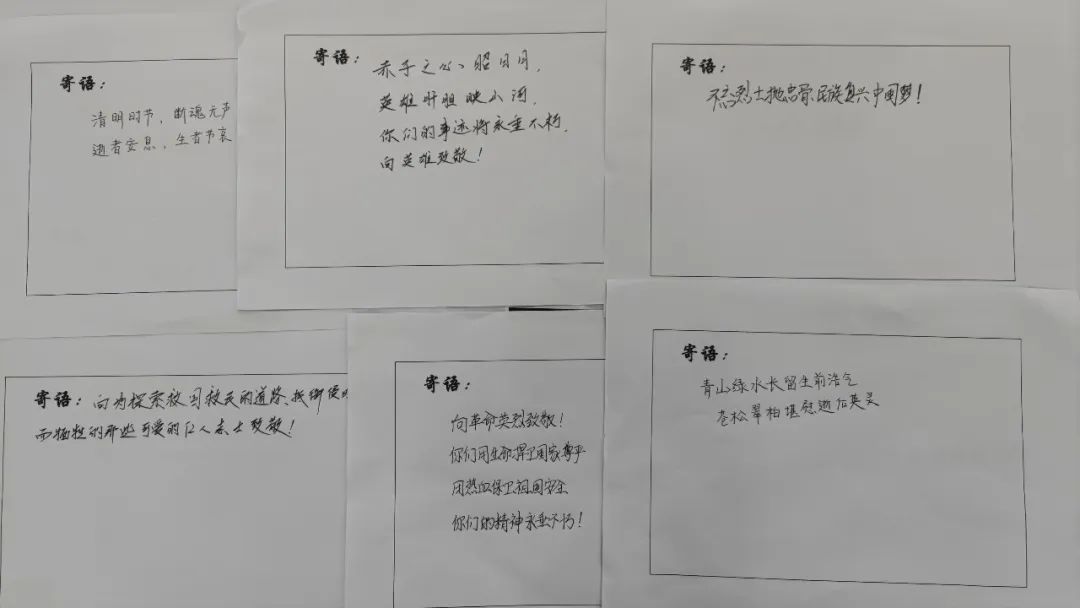 寄语：
清明时节，断魂无声
逝者安息，生者节哀
寄语：
赤子之心昭日月，
英雄肝胆映山河，
你们的事迹将永垂不朽，
向英雄致敬！
寄语：
不忘烈士抛忠骨，民族复兴中国梦！
寄语：向为探索救国救民的道路、抵御侵
而牺牲的那些可爱的仁人志士致敬！
寄语：
向革命英烈致敬！
你们用生命捍卫国家尊严
用热血保卫祖国安全
你们的精神永垂不朽！
寄语：
青山绿水长留生前浩气
苍松翠柏堪慰逝后英灵